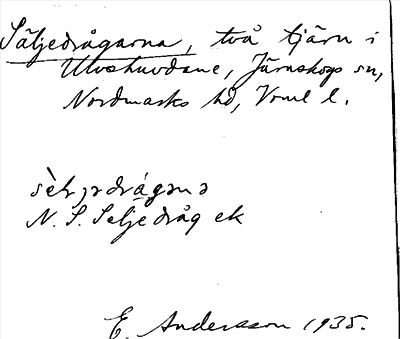 Säljedrågarna, två tjärn i
Ulvshuvdane, Järnskogs sn,
Nordmarks hd, Vrml l.
N. S. Seljedråg ek
E. Andersson 1935.